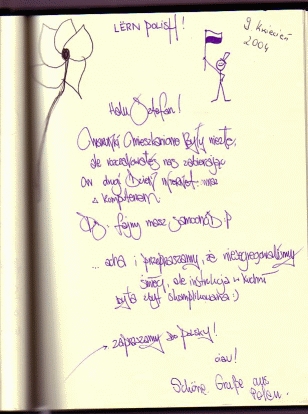 LËRN POLISH!
9 kwiecień
2004
Hallo Sztefan!
Warunki mieszkaniowe były niezłe,
ale rozczarowałeś nas zabierając
on drugi Dzień internet wraz
z komputerem
Ps. fajny masz samochód :P
... acha i przepraszamy, że niesegregowaliśmy
śmieci, ale instrukcja w kuchni
była zbyt skomplikowana :)
zapraszamy do Polski!
ciau!
Schöne Grüße aus
Polen.